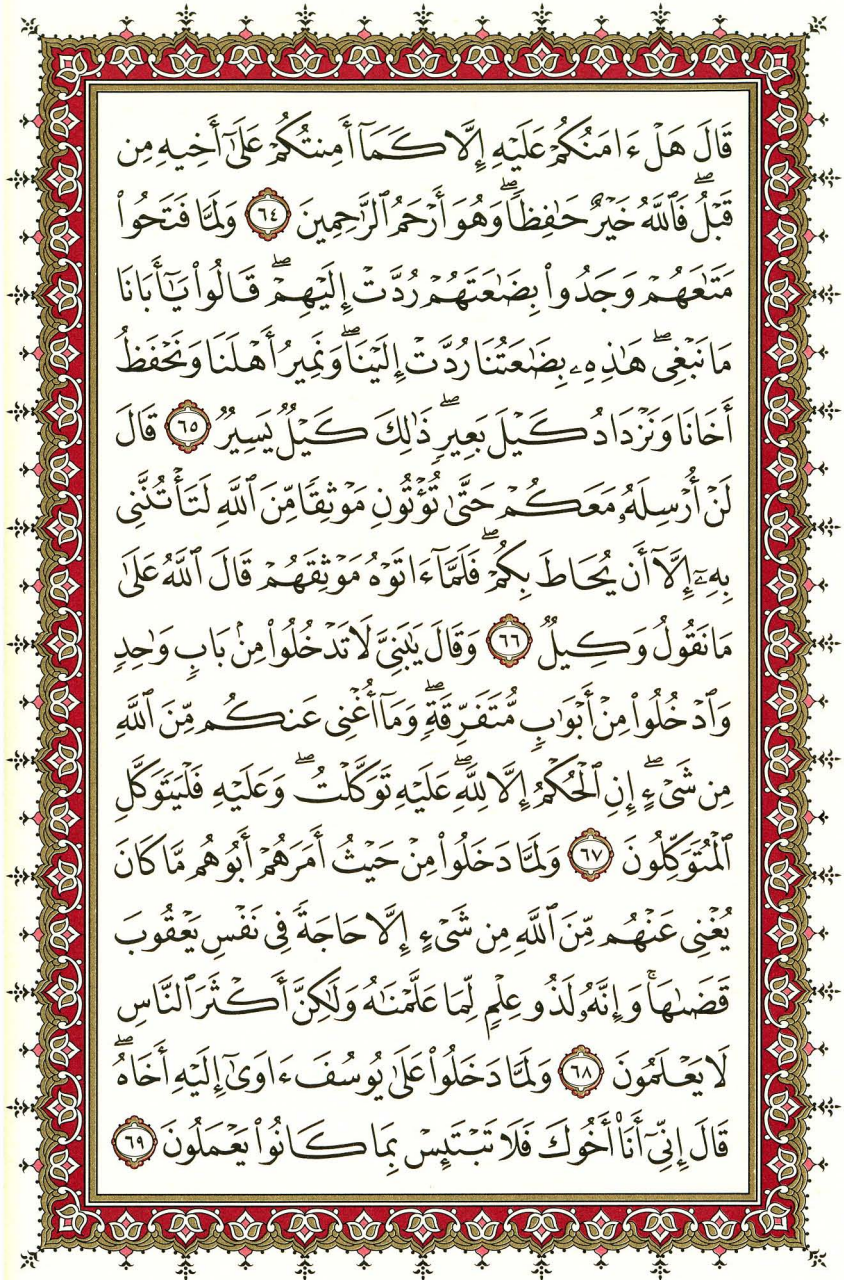 قَالَ هَلْ ءَامَنُكُمْ عَلَيْهِ إِلَّا كَمَآ أَمِنتُكُمْ عَلَىٰٓ أَخِيهِ مِن
قَبْلُ ۖ فَٱللَّهُ خَيْرٌ حَٰفِظًا ۖ وَهُوَ أَرْحَمُ ٱلرَّٰحِمِينَ ٦٤ وَلَمَّا فَتَحُوا۟
مَتَٰعَهُمْ وَجَدُوا۟ بِضَٰعَتَهُمْ رُدَّتْ إِلَيْهِمْ ۖ قَالُوا۟ يَٰٓأَبَانَا
مَا نَبْغِى ۖ هَٰذِهِۦ بِضَٰعَتُنَا رُدَّتْ إِلَيْنَا ۖ وَنَمِيرُ أَهْلَنَا وَنَحْفَظُ
أَخَانَا وَنَزْدَادُ كَيْلَ بَعِيرٍ ۖ ذَٰلِكَ كَيْلٌ يَسِيرٌ ٦٥ قَالَ
لَنْ أُرْسِلَهُۥ مَعَكُمْ حَتَّىٰ تُؤْتُونِ مَوْثِقًا مِّنَ ٱللَّهِ لَتَأْتُنَّنِى
بِهِۦٓ إِلَّآ أَن يُحَاطَ بِكُمْ ۖ فَلَمَّآ ءَاتَوْهُ مَوْثِقَهُمْ قَالَ ٱللَّهُ عَلَىٰ
مَا نَقُولُ وَكِيلٌ ٦٦ وَقَالَ يَٰبَنِىَّ لَا تَدْخُلُوا۟ مِنۢ بَابٍ وَٰحِدٍ
وَٱدْخُلُوا۟ مِنْ أَبْوَٰبٍ مُّتَفَرِّقَةٍ ۖ وَمَآ أُغْنِى عَنكُم مِّنَ ٱللَّهِ
مِن شَىْءٍ ۖ إِنِ ٱلْحُكْمُ إِلَّا لِلَّهِ ۖ عَلَيْهِ تَوَكَّلْتُ ۖ وَعَلَيْهِ فَلْيَتَوَكَّلِ
ٱلْمُتَوَكِّلُونَ ٦٧ وَلَمَّا دَخَلُوا۟ مِنْ حَيْثُ أَمَرَهُمْ أَبُوهُم مَّا كَانَ
يُغْنِى عَنْهُم مِّنَ ٱللَّهِ مِن شَىْءٍ إِلَّا حَاجَةً فِى نَفْسِ يَعْقُوبَ
قَضَىٰهَا ۚ وَإِنَّهُۥ لَذُو عِلْمٍ لِّمَا عَلَّمْنَٰهُ وَلَٰكِنَّ أَكْثَرَ ٱلنَّاسِ
لَا يَعْلَمُونَ ٦٨ وَلَمَّا دَخَلُوا۟ عَلَىٰ يُوسُفَ ءَاوَىٰٓ إِلَيْهِ أَخَاهُ ۖ
قَالَ إِنِّىٓ أَنَا۠ أَخُوكَ فَلَا تَبْتَئِسْ بِمَا كَانُوا۟ يَعْمَلُونَ ٦٩